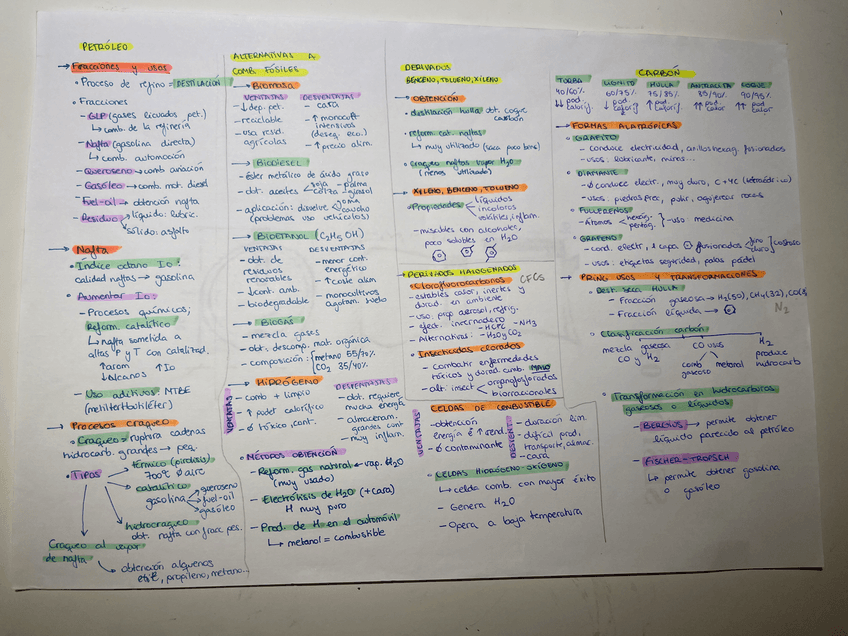 PETRÓLEO
→ Fracciones y usos
• Proceso de refino = DESTILACIÓN
• Fracciones
- GLP (gases licuados, pet.)
↳ comb. de la refinería
- Nafta (gasolina directa)
↳ comb. automoción
- Queroseno → comb aviación
- Gasóleo → comb. mot. diesel
- Fuel-oil → obtención nafta
- Residuo líquido: lubric.
sólido: asfalto
→ Nafta
• Índice octano Io:
calidad naftas → gasolina
• Aumentar Io:
- Procesos químicos;
Reform. catalítico
↳ nafta sometida a
altas P y T con catalizad.
↑ arom ↑ Io
↓ alcanos
- Uso aditivos: MTBE
(metiltertbutiléter)
→ Procesos craqueo
• Craqueo = ruptura cadenas
hidrocarb. grandes → peq.
• Tipos
térmico (pirólisis)
700ºC aire
catalítico
gasolina queroseno
fuel-oil
gasóleo
hidrocraqueo
obt. nafta con fracc. pes.
Craqueo al vapor
de nafta
obtención alquenos
propileno, metano...
ALTERNATIVAS A
COMB. FÓSILES
→ Biomasa
VENTAJAS DESVENTAJAS
- ↓ dep. pet. - cara
- reciclable - ↑ monocult
intensivos
- usa resid. (deseq. eco.)
agrícolas - ↑ precio alim.
• BIODIESEL
- éster metílico de ácido graso
- obt. aceites soja - palma
colza - girasol
- aplicación: disuelve goma
caucho
(problemas uso vehículos)
• BIOETANOL (C2H5OH)
VENTAJAS DESVENTAJAS
- obt. de - menor cont.
residuos energético
renovables - ↑ coste alim
- ↓ cont. amb. - monocultivos
- biodegradable agotam. suelo
• BIOGÁS
- mezcla gases
- obt. descomp. mat. orgánica
- composición: metano 55/70%
CO2 35/40%
→ HIDRÓGENO
VENTAJAS
- comb + limpio
- ↑ poder calorífico
- ó tóxico, cont.
DESVENTAJAS
- obt. requiere
mucha energía
- almacenam.
grandes cont
- muy inflam.
• MÉTODOS OBTENCIÓN
- Reform. gas natural + vap. H2O
(muy usado)
- Electrólisis de H2O (+ cara)
H muy puro
- Prod. de H en el automóvil
↳ metanol = combustible
DERIVADOS
BENCENO, TOLUENO, XILENO
→ OBTENCIÓN
• destilación hulla obt. coque
carbón
• reform. cat. naftas
↳ muy utilizado (saca poco benc)
• craqueo naftas vapor H2O
(menos utilizado)
→ XILENO, BENCENO, TOLUENO
• Propiedades líquidos
incoloros
volátiles, inflam.
- miscibles con alcoholes,
poco solubles en H2O
→ DERIVADOS HALOGENADOS
• Clorofluorocarbonos CFCs
- estables calor, inertes y
durad. en ambiente
- uso: prop aerosol, refrig.
- efect. invernadero
- Alternativas: - HCFC - NH3
- H2O y CO2
• Insecticidas clorados
- combatir enfermedades
tóxicos y durad. amb. MALO
- alt. insect organofosforados
biorracionales
CELDAS DE COMBUSTIBLE
VENTAJAS
- obtención
energía ↑ rend.
- ó contaminante
DESVEN.
- duración lim.
- difícil prod,
transporte, almac.
- cara
• CELDAS HIDRÓGENO-OXÍGENO
↳ celda comb. con mayor éxito
- Genera H2O
- Opera a baja temperatura
CARBÓN
TURBA LIGNITO HULLA ANTRACITA COQUE
40/60% 60/75% 75/85% 85/90% 90/95%
↓↓ pod. calorif. ↓ pod. calorif ↑ pod. calorif ↑↑ pod. calor ↑↑ pod. calor
→ FORMAS ALOTRÓPICAS
• GRAFITO
- conduce electricidad, anillos hexag. fusionados
- usos: lubricante, minas...
• DIAMANTE
- ó conduce electr., muy duro, C + 4C (tetraédrico)
- usos: piedras prec, pulir, agujerear rocas
• FULLERENOS
- Átomos hexág.
pentág. - uso: medicina
• GRAFENO
- cond. electr, 1 capa fusionados fino
duro costoso
- usos: etiquetas seguridad, palas pádel
→ PRINC. USOS Y TRANSFORMACIONES
• Dest. seca HULLA
- Fracción gaseosa → H2(50), CH4(32), CO(8)
N2
- Fracción líquida →
• Clasificación carbón:
mezcla gaseosa CO usos H2
CO y H2 comb gaseoso metanol produce
hidrocarb
• Transformación en hidrocarburos
gaseosos o líquidos
- BERGIUS → permite obtener
líquido parecido al petróleo
- FISCHER-TROPSCH
↳ permite obtener gasolina
o gasóleo